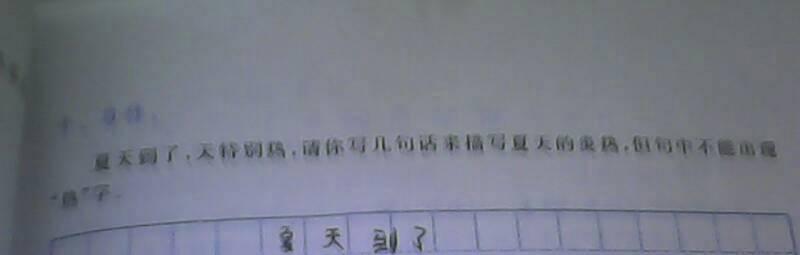 十、写话。
夏天到了,天特别热,请你写几句话来描写夏天的炎热,但句中不能出现
“热”字.
夏天到了